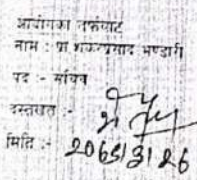 आयोगका तर्फबाट
नाम : प्रा शंकरप्रसाद भण्डारी
पद :- सचिव
दस्तखत :-
मिति :- 2065/3/26